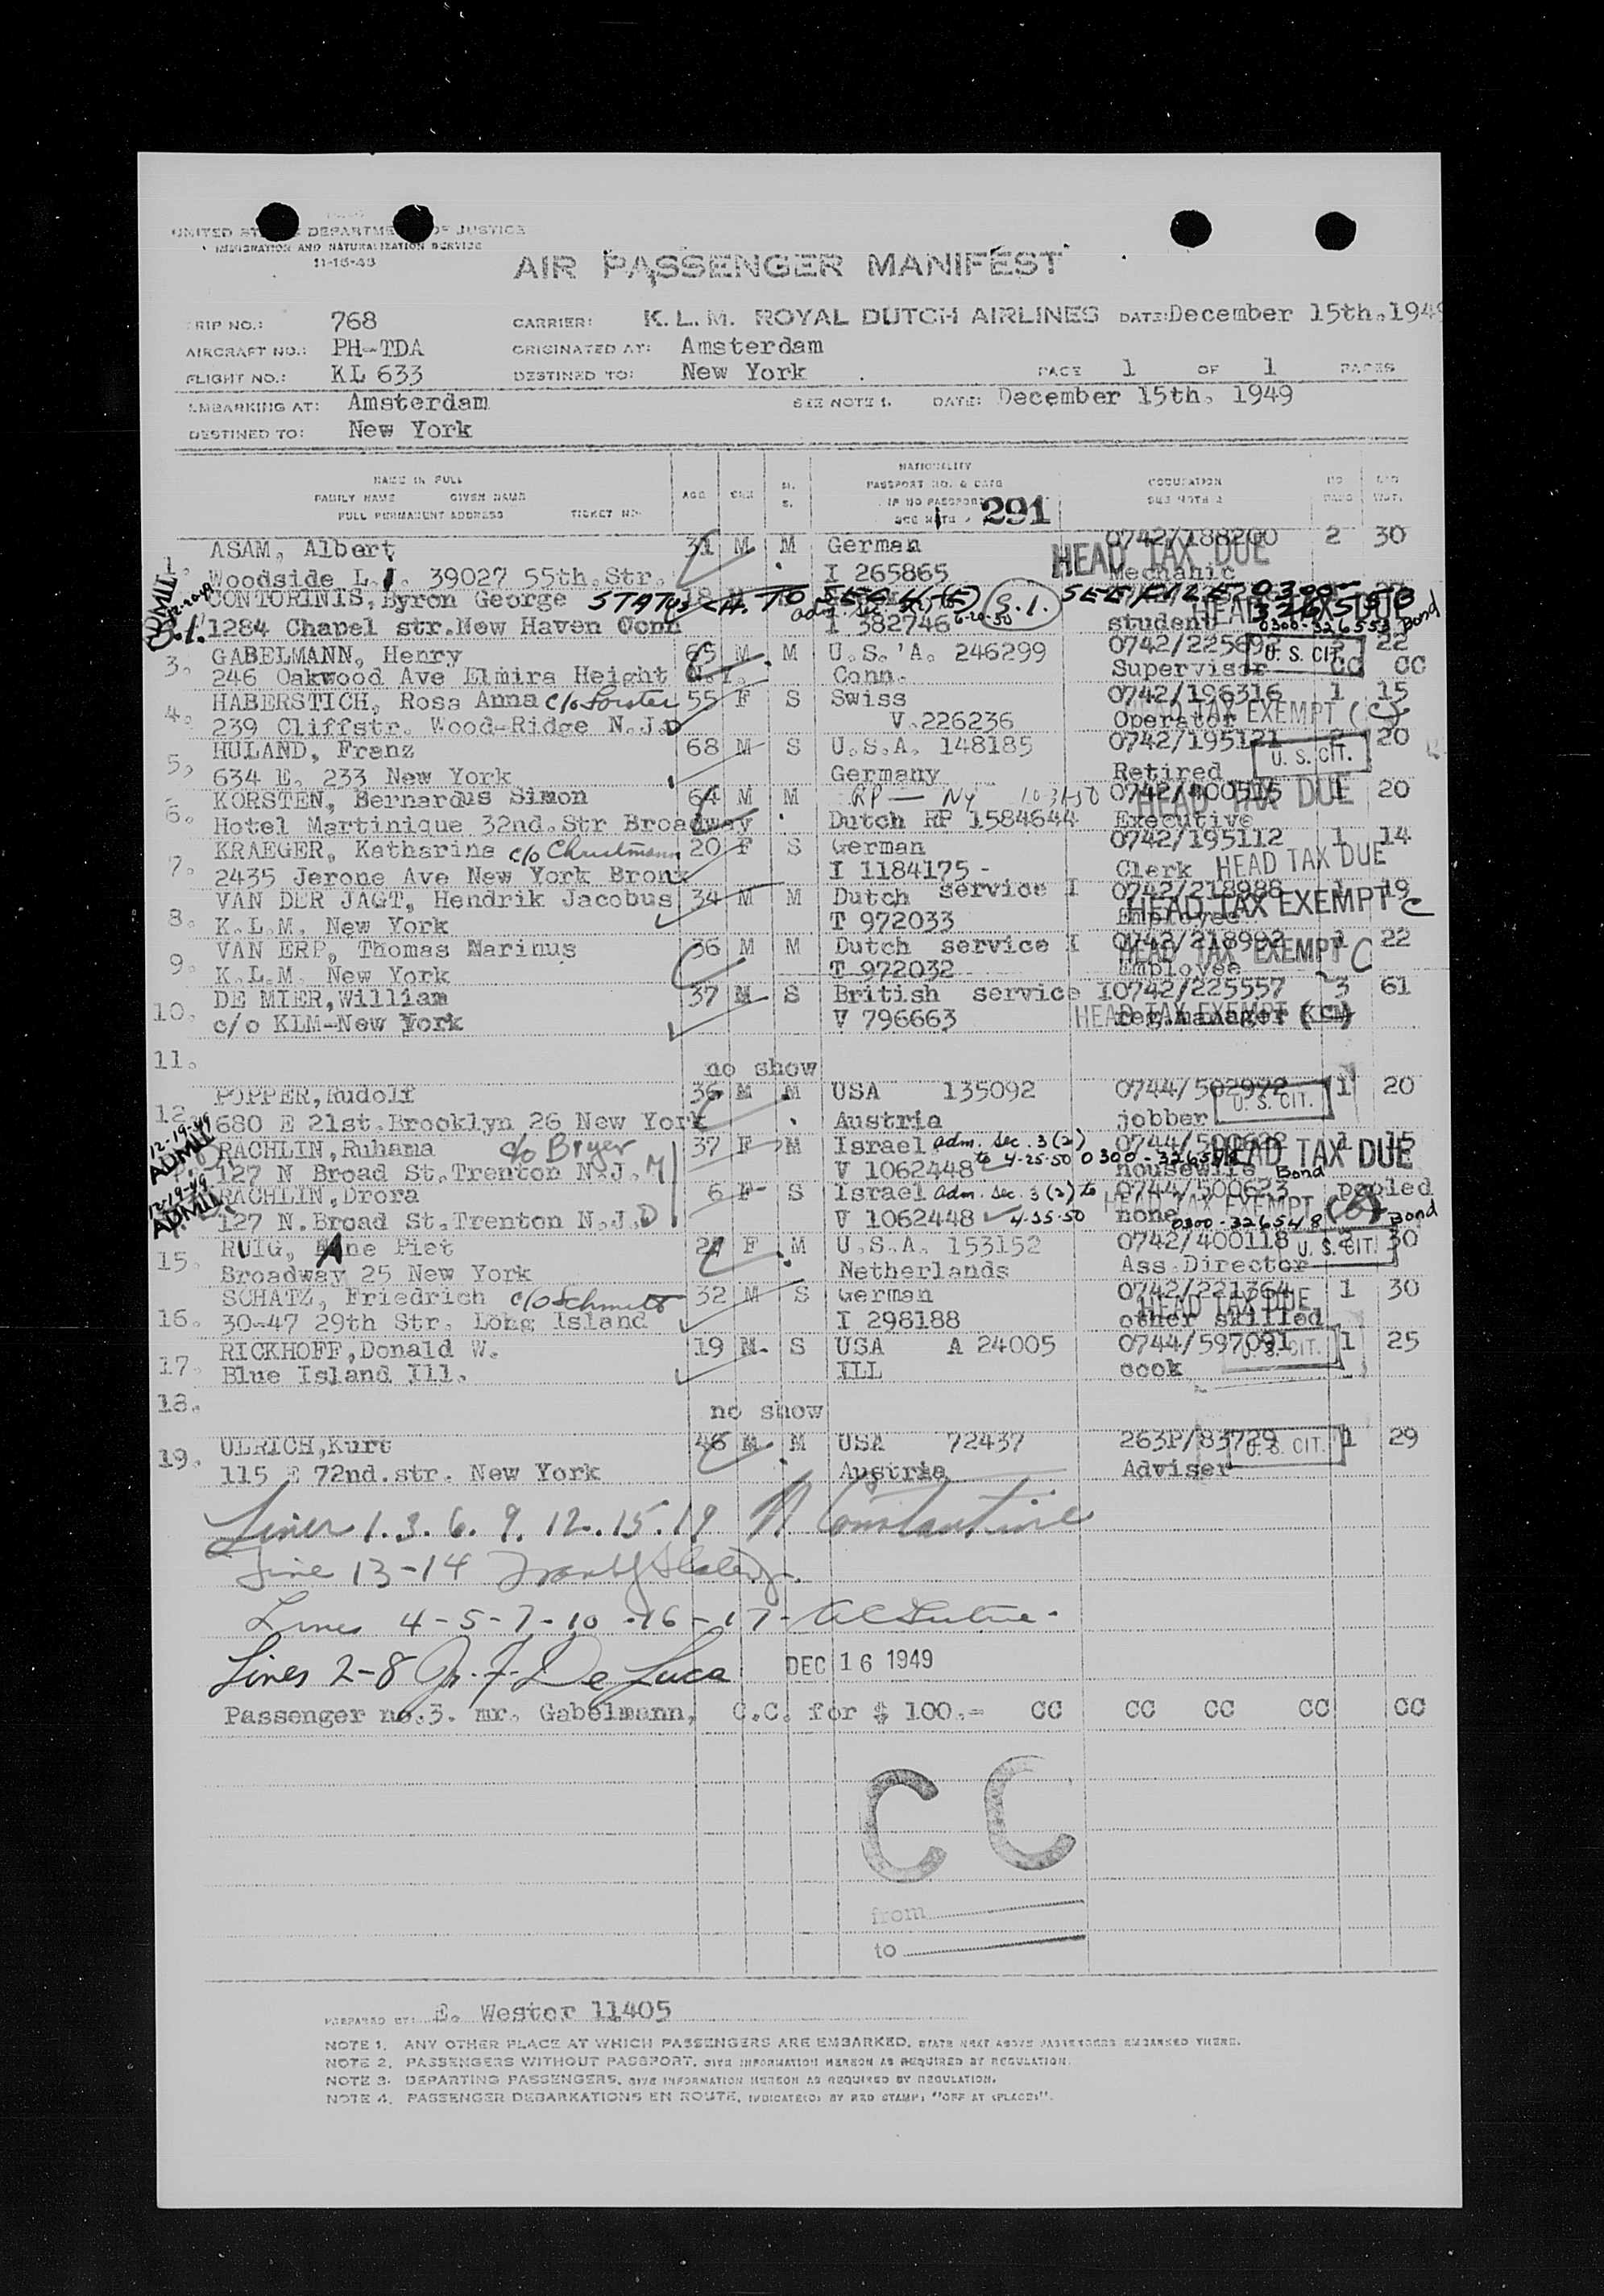 UNITED ST DEPARTME OF JUSTICE
IMMIGRATION AND NATURALIZATION SERVICE
11-15-43
AIR PASSENGER MANIFEST
TRIP NO.: 768 CARRIER: K.L.M. ROYAL DUTCH AIRLINES DATE: December 15th.1949
AIRCRAFT NO.: PH-TDA ORIGINATED AT: Amsterdam
FLIGHT NO.: KL 633 DESTINED TO: New York PAGE 1 OF 1 PAGES
EMBARKING AT: Amsterdam SEE NOTE 1. DATE: December 15th, 1949
DESTINED TO: New York
NAME IN FULL
FAMILY NAME GIVEN NAME
FULL PERMANENT ADDRESS TICKET NO.
AGE SEX M. S.
NATIONALITY
PASSPORT NO. & DATE
IF NO PASSPORT
SEE NOTE 291
OCCUPATION
SEE NOTE 2
1. ASAM, Albert 31 M M German 0742/188200 2 30
Woodside L.I. 39027 55th.Str. I 265865 Mechanic HEAD TAX DUE
ADMIL 12-20-49
CONTORINIS,Byron George 18 STATUS CH. TO SEC 4-(E) S.I. SEE FILE 0300-
S.I. 1284 Chapel str.New Haven Conn I 382746 6-20-50 student HEAD TAX DUE 0300-326553 Bond
3. GABELMANN, Henry 65 M M U.S.'A. 246299 0742/225692 U. S. CIT. 22
246 Oakwood Ave Elmira Height N.Y. Conn. Supervisor CC CC
4. HABERSTICH, Rosa Anna c/o Forster 55 F S Swiss 0742/196316 1 15
239 Cliffstr. Wood-Ridge N.J. V.226236 Operator HEAD TAX EXEMPT (C)
5, HULAND, Franz 68 M S U.S.A. 148185 0742/195121 2 20
634 E. 233 New York Germany Retired U. S. CIT.
6. KORSTEN, Bernardus Simon 64 M M RP — NY 0742/400515 1 20
Hotel Martinique 32nd.Str Broadway Dutch RP 1584644 Executive HEAD TAX DUE
7. KRAEGER, Katharina c/o Christmann 20 F S German 0742/195112 1 14
2435 Jerone Ave New York Bronx I 1184175 - Clerk HEAD TAX DUE
8. VAN DER JAGT, Hendrik Jacobus 34 M M Dutch service I 0742/218988 1 19
K.L.M. New York T 972033 Employee HEAD TAX EXEMPT C
9. VAN ERP, Thomas Marinus 36 M M Dutch service I 0742/218992 1 22
K.L.M. New York T 972032 Employee HEAD TAX EXEMPT C
10. DE MIER,William 37 M S British service I 0742/225557 3 61
c/o KLM-New York V 796663 reg.manager KLM HEAD TAX EXEMPT (C)
11. no show
12. POPPER,Rudolf 36 M M USA 135092 0744/502972 1 20
680 E 21st.Brooklyn 26 New York Austria jobber U. S. CIT.
12-19-49 ADMIL
RACHLIN,Ruhama c/o Bryer 37 F M Israel adm. sec. 3(2) 0744/500622 1 15
127 N Broad St.Trenton N.J. M V 1062448 to 4-25-50 housewife Bond HEAD TAX DUE
12-19-49 ADMIL
RACHLIN,Drora 6 F S Israel adm. sec. 3(2) to 0744/500623 pooled
127 N.Broad St.Trenton N.J. D V 1062448 none HEAD TAX EXEMPT 0300-326548 Bond
15. RUIG, Ane Piet F M U.S.A. 153152 0742/400118 2 30
Broadway 25 New York Netherlands Ass Director U. S. CIT.
16. SCHATZ, Friedrich c/o Schmitt 32 M S German 0742/221364 1 30
30-47 29th Str. Long Island I 298188 other skilled HEAD TAX DUE
17. RICKHOFF,Donald W. 19 M. S USA A 24005 0744/597091 1 25
Blue Island Ill. ILL cook U. S. CIT.
18. no show
19. ULRICH,Kurt 46 M M USA 72437 263P/83729 1 29
115 E 72nd.str. New York Austria Adviser U. S. CIT.
Lines 1.3.6.9.12.15.19 N Constantine
Line 13-14
Lines 4-5-7-10-16-17-
Lines 2-8 De Luca DEC 16 1949
Passenger no.3. mr. Gabelmann, C.C. for $ 100.- CC CC CC CC CC
CC
from
to
PREPARED BY: E. Wester 11405
NOTE 1. ANY OTHER PLACE AT WHICH PASSENGERS ARE EMBARKED, STATE NEXT ABOVE PASSENGERS EMBARKED THERE.
NOTE 2. PASSENGERS WITHOUT PASSPORT, GIVE INFORMATION HEREON AS REQUIRED BY REGULATION.
NOTE 3. DEPARTING PASSENGERS, GIVE INFORMATION HEREON AS REQUIRED BY REGULATION.
NOTE 4. PASSENGER DEBARKATIONS EN ROUTE, INDICATE(D) BY RED STAMP: "OFF AT (PLACE)".